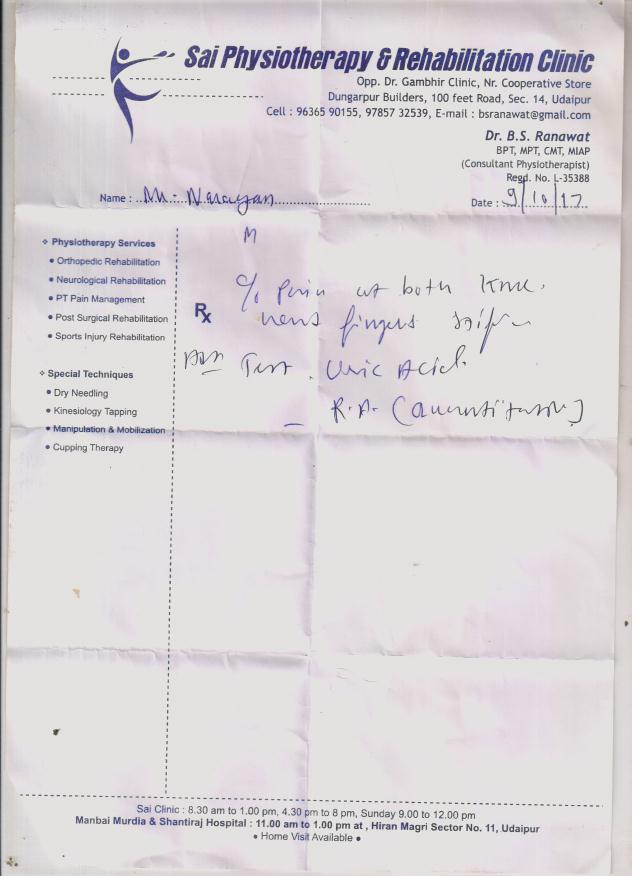 Sai Physiotherapy & Rehabilitation Clinic
Opp. Dr. Gambhir Clinic, Nr. Cooperative Store
Dungarpur Builders, 100 feet Road, Sec. 14, Udaipur
Cell : 96365 90155, 97857 32539, E-mail : bsranawat@gmail.com
Dr. B.S. Ranawat
BPT, MPT, CMT, MIAP
(Consultant Physiotherapist)
Regd. No. L-35388
Name : Mr. Narayan
Date : 9/10/17
M
❖ Physiotherapy Services
● Orthopedic Rehabilitation
● Neurological Rehabilitation
● PT Pain Management
● Post Surgical Rehabilitation
● Sports Injury Rehabilitation
❖ Special Techniques
● Dry Needling
● Kinesiology Tapping
● Manipulation & Mobilization
● Cupping Therapy
Rx
c/o Pain at both Knee.
fingers
Test. Uric Acid.
– R.A. (
Sai Clinic : 8.30 am to 1.00 pm, 4.30 pm to 8 pm, Sunday 9.00 to 12.00 pm
Manbai Murdia & Shantiraj Hospital : 11.00 am to 1.00 pm at , Hiran Magri Sector No. 11, Udaipur
● Home Visit Available ●